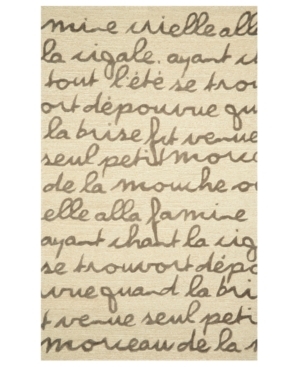 mine crielle alle
la cigale. ayant c
tout l'été se trou
ort dépouvue qu
la brise fit venue
seul petit morce
de la mouche o
elle alla famine
ayant chant la cig
se trouvort dépo
vue quand la bri
t venue seul peti
morceau de la m